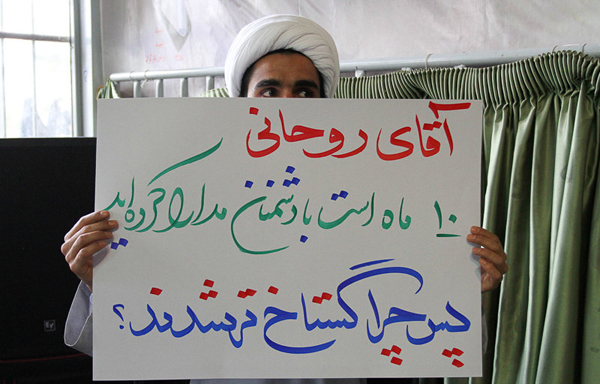 آقای روحانی
۱۰ ماه است با دشمنان مدارا کرده اید
پس چرا گستاخ تر شدند؟